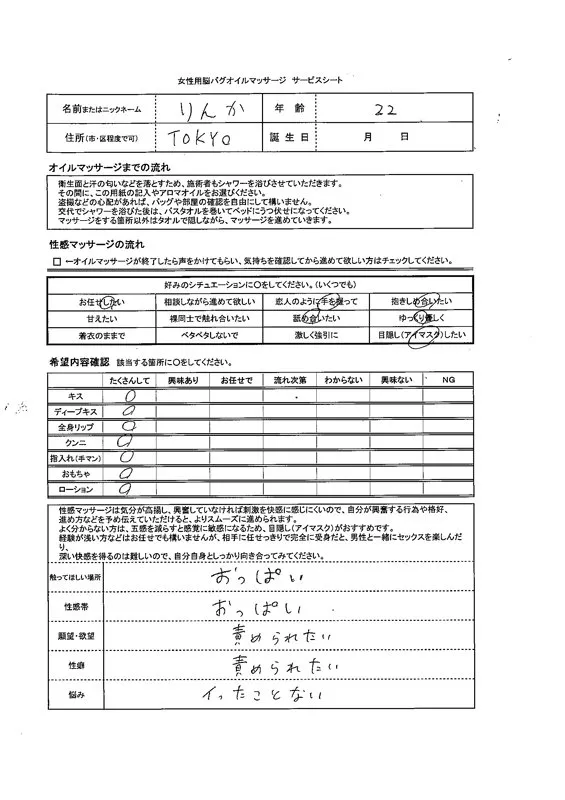 女性用脳バグオイルマッサージ サービスシート
名前またはニックネーム りんか 年齢 22
住所(市・区程度で可) TOKYO 誕生日 月 日
オイルマッサージまでの流れ
衛生面と汗の匂いなどを落とすため、施術者もシャワーを浴びさせていただきます。
その間に、この用紙の記入やアロマオイルをお選びください。
盗撮などの心配があれば、バッグや部屋の確認を自由にして構いません。
交代でシャワーを浴びた後は、バスタオルを巻いてベッドにうつ伏せになってください。
マッサージをする箇所以外はタオルで隠しながら、マッサージを進めていきます。
性感マッサージの流れ
□ ←オイルマッサージが終了したら声をかけてもらい、気持ちを確認してから進めて欲しい方はチェックしてください。
好みのシチュエーションに〇をしてください。(いくつでも)
お任せしたい 相談しながら進めて欲しい 恋人のように手を握って 抱きしめ合いたい
甘えたい 裸同士で触れ合いたい 舐め合いたい ゆっくり優しく
着衣のままで ベタベタしないで 激しく強引に 目隠し(アイマスク)したい
希望内容確認 該当する箇所に〇をしてください。
たくさんして 興味あり お任せで 流れ次第 わからない 興味ない NG
キス 〇
ディープキス 〇
全身リップ 〇
クンニ 〇
指入れ(手マン) 〇
おもちゃ 〇
ローション 〇
性感マッサージは気分が高揚し、興奮していなければ刺激を快感に感じにくいので、自分が興奮する行為や格好、
進め方などを予め伝えていただけると、よりスムーズに進められます。
よく分からない方は、五感を減らすと感覚に敏感になるため、目隠し(アイマスク)がおすすめです。
経験が浅い方などはお任せでも構いませんが、相手に任せっきりで完全に受身だと、男性と一緒にセックスを楽しんだ
り、
深い快感を得るのは難しいので、自分自身としっかり向き合ってみてください。
触ってほしい場所 おっぱい
性感帯 おっぱい
願望・欲望 責められたい
性癖 責められたい
悩み イったことない